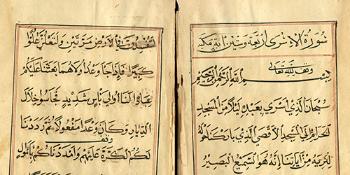 سورة الاسرى اربعة وستين اية مكية
وقف لله تعالى
بسم الله الرحمن الرحيم
سبحان الذي اسرى بعبده ليلا من المسجد
الحرام الى المسجد الاقصى الذي باركنا حوله
لنريه من اياتنا انه هو السميع البصير
لتفسدن في الارض مرتين ولتعلن علوا
كبيرا فاذا جا وعد اولاهما بعثنا عليكم
عبادا لنا اولي باس شديد فجاسوا خلال
الديار وكان وعدا مفعولا ثم رددنا
لكم الكرة عليهم وامددناكم باموال